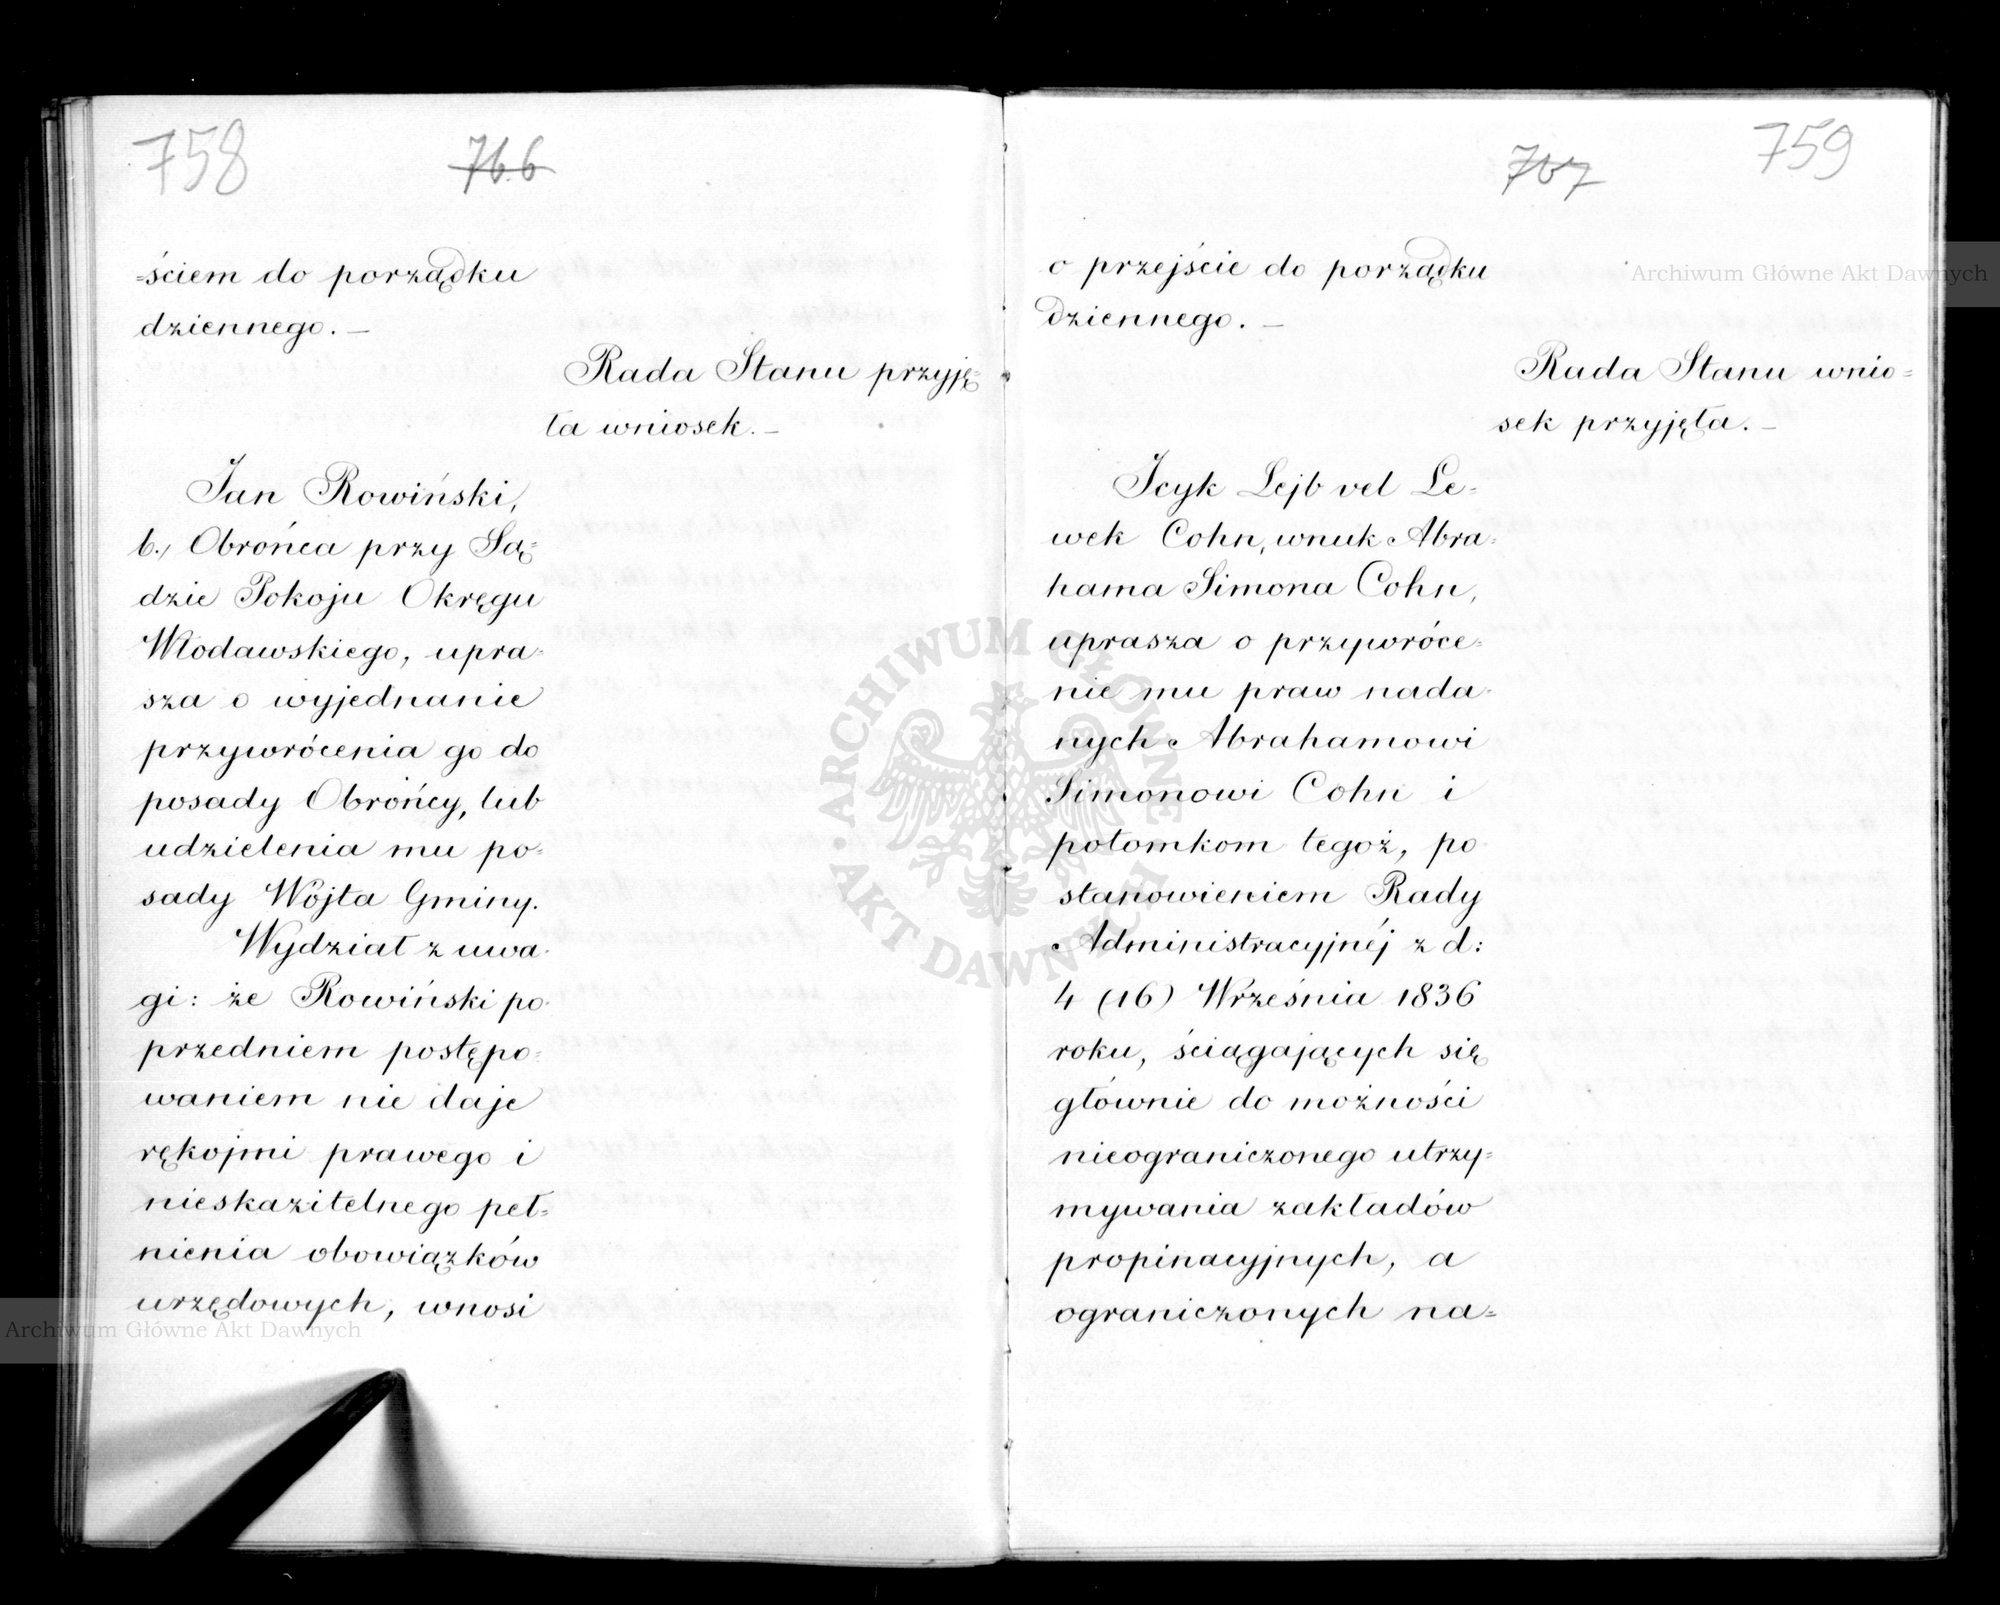 758
766
=ściem do porządku
dziennego. —
Rada Stanu przyję=
ła wniosek. —
Jan Rowiński,
b., Obrońca przy Są=
dzie Pokoju Okręgu
Włodawskiego, upra-
sza o wyjednanie
przywrócenia go do
posady Obrońcy, lub
udzielenia mu po-
sady Wójta Gminy.
Wydział z uwa-
gi: że Rowiński po-
przedniem postępo-
waniem nie daje
rękojmi prawego i
nieskazitelnego peł-
nienia obowiązków
urzędowych, wnosi
759
767
o przejście do porządku
dziennego. —
Rada Stanu wnio=
sek przyjęła. —
Icyk Lejb vel Le-
wek Cohn, wnuk Abra-
hama Simona Cohn,
uprasza o przywróce-
nie mu praw nada-
nych Abrahamowi
Simonowi Cohn i
potomkom tegoż, po-
stanowieniem Rady
Administracyjnéj z d:
4 (16) Września 1836
roku, ściągających się
głównie do możności
nieograniczonego utrzy=
mywania zakładów
propinacyjnych, a
ograniczonych na=
Archiwum Główne Akt Dawnych
Archiwum Główne Akt Dawnych
ARCHIWUM GŁÓWNE · AKT DAWNYCH ·